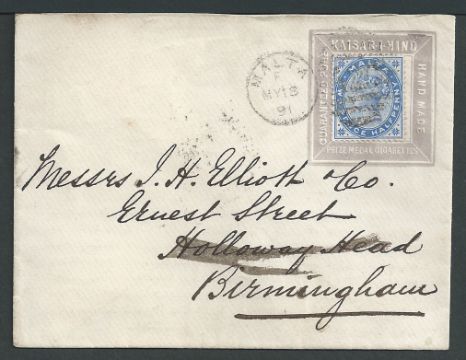 KAISAR-I-HIND
GUARANTEED PURE
HAND MADE
MALTA
POSTAGE
HALFPENNY
PRIZE MEDAL CIGARETTES
MALTA
F
MY 18
91
Messrs J. H. Elliott & Co.
Ernest Street
Holloway Head
Birmingham